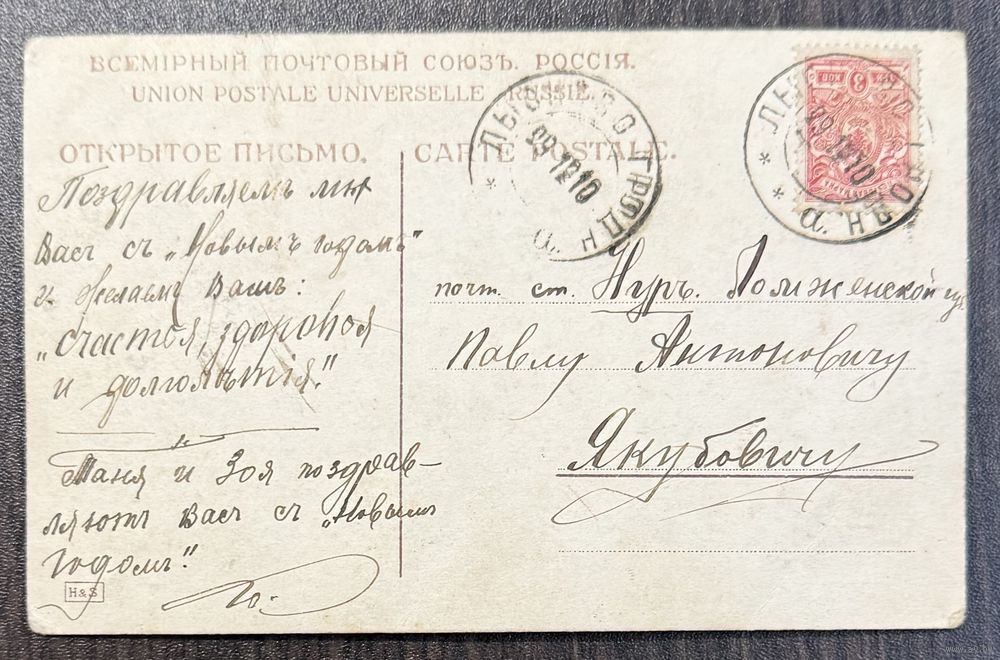 ВСЕМІРНЫЙ ПОЧТОВЫЙ СОЮЗЪ. РОССІЯ.
UNION POSTALE UNIVERSELLE RUSSIE.
ОТКРЫТОЕ ПИСЬМО.
CARTE POSTALE.
Поздравляемъ мы
Васъ съ „Новымъ годомъ"
и желаемъ Вамъ:
„счастья, здоровья
и долголѣтія."
Маня и Зоя поздрав-
ляютъ Васъ съ „Новымъ
Годомъ."
Ю.
H&S
29 12 10
ГРОДН
29 12 10
3
КОП
почт. ст. Нуръ. Ломженской губ
Павлу Антоновичу
Якубовичу
www.ay.by